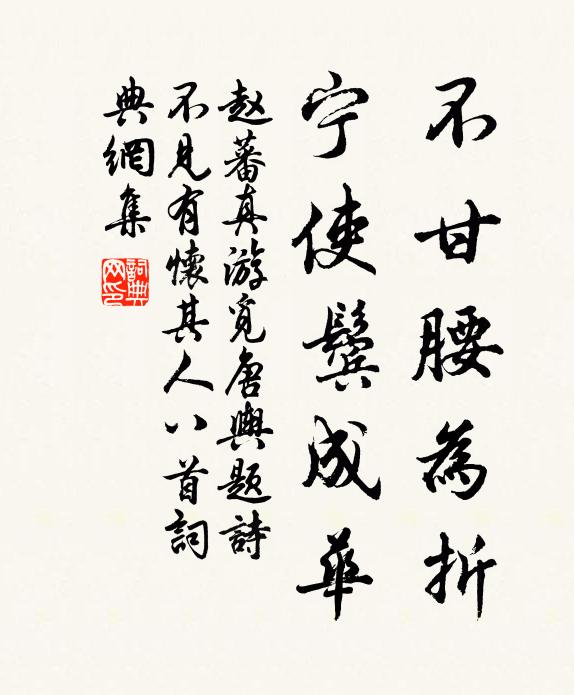 不甘腰為折
宁使鬓成華
赵蕃真游覓唐與題詩
不見有懷其人八首詞
典網集
詞典网印